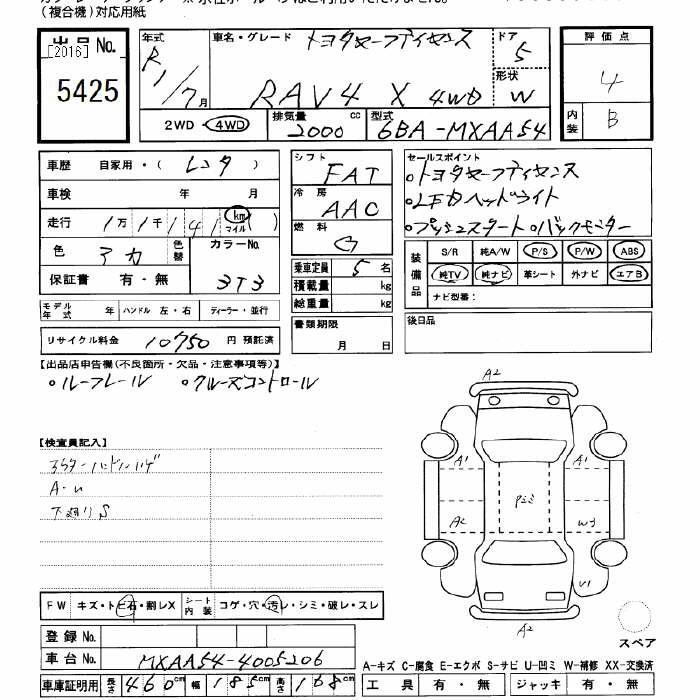 (複合機)対応用紙
出品 No.
[2016]
5425
年式
R 1/7月
車名・グレード トヨタセーフティセンス
RAV4 X 4WD
ドア 5
形状 W
2WD・4WD
排気量 2000 cc
型式 6BA-MXAA54
評価点
4
内装 B
車歴 自家用・(レンタ)
車検 年 月
走行 1万1千141 km マイル
色 アカ 色替 カラーNo.
保証書 有・無 3T3
モデル年式 年 ハンドル 左・右 ディーラー・並行
リサイクル料金 10750 円 預託済
シフト FAT
冷房 AAC
燃料 G
乗車定員 5名
積載量 kg
総重量 kg
書類期限
月 日
セールスポイント
・トヨタセーフティセンス
・LEDヘッドライト
・プッシュスタート ・バックモニター
装備品
S/R 純A/W P/S P/W ABS
純TV 純ナビ 革シート 外ナビ エアB
ナビ型番:
後日品
【出品店申告欄(不良箇所・欠品・注意事項等)】
・ルーフレール ・クルーズコントロール
【検査員記入】
下廻りS
A2
A1 A1
A2
W3
V1
A2
FW キズ・トビ石・割レX シート内装 コゲ・穴・汚レ・シミ・破レ・スレ
登録 No.
車台 No. MXAA54-4005206
車庫証明用 長さ 460cm 幅 185cm 高さ 168cm
スペア
A-キズ C-腐食 E-エクボ S-サビ U-凹ミ W-補修 XX-交換済
工具 有・無 ジャッキ 有・無